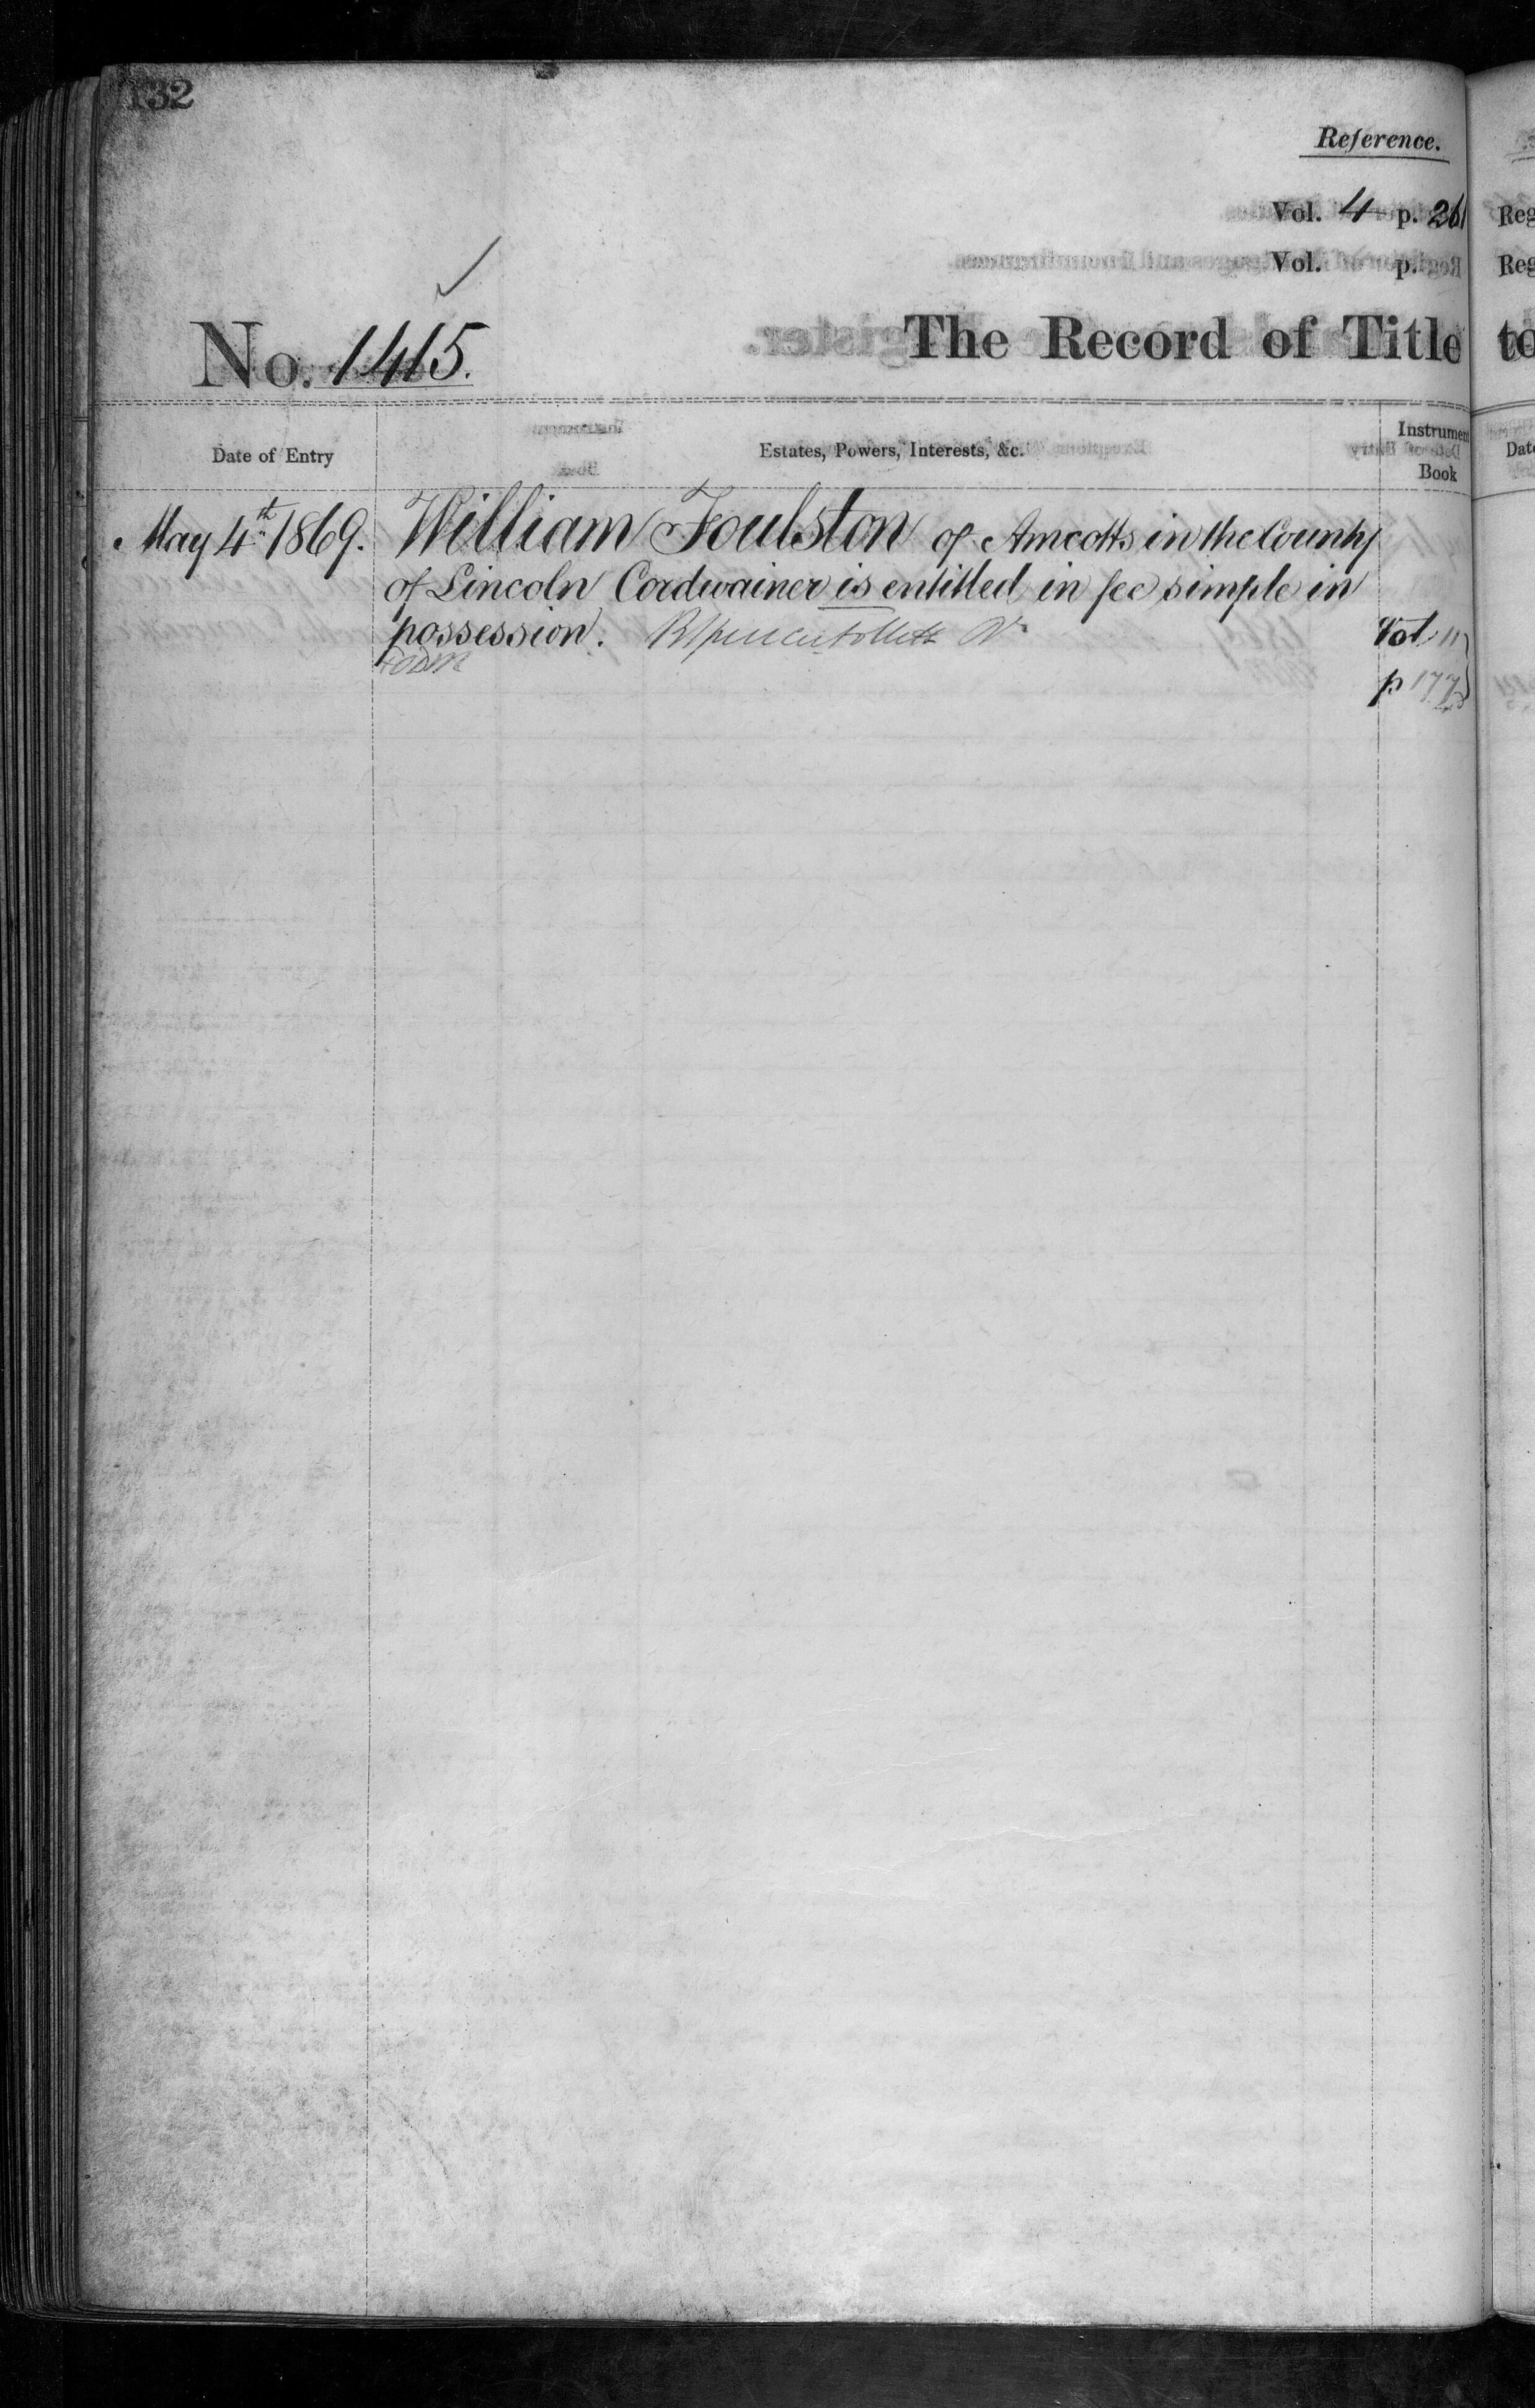 132
Reference.
Vol. 4 p. 261
Vol. p.
No. 1415.
The Record of Title
Date of Entry
Estates, Powers, Interests, &c.
Instrument
Book
May 4th 1869.
William Foulston of Amcotts in the County
of Lincoln Cordwainer is entitled in fee simple in
possession.
Vol 11
p 177
Reg
Reg
to
Date